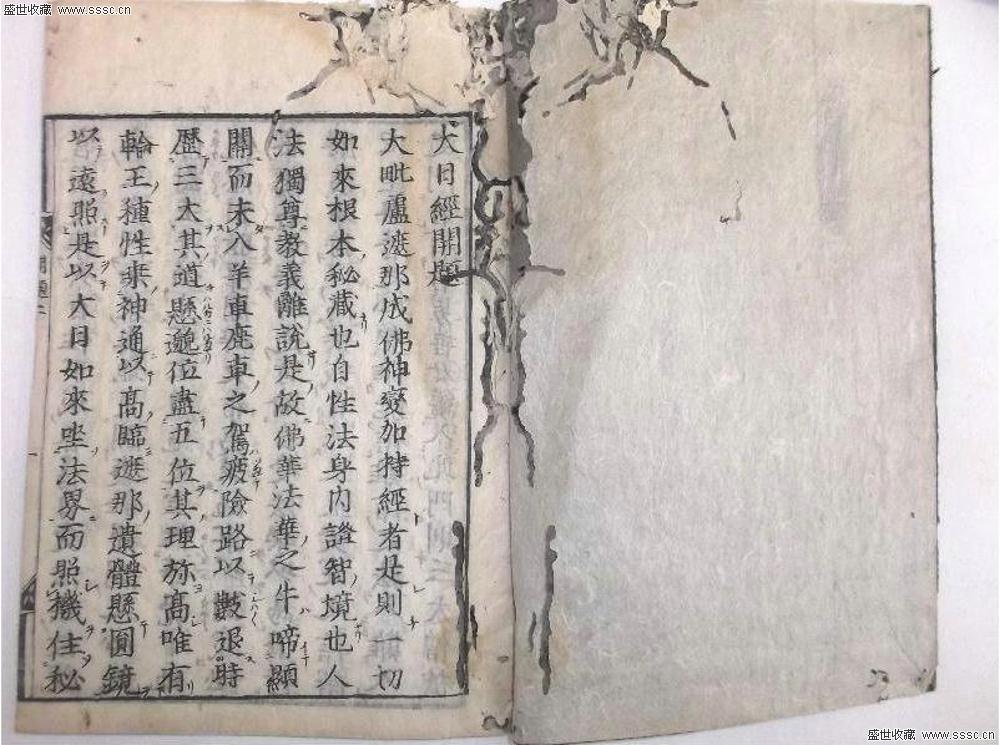 盛世收藏 www.sssc.cn
盛世收藏 www.sssc.cn
大日經開題
大毗盧遮那成佛神變加持經者是則一切
如來根本秘藏也自性法身內證智境也人
法獨尊教義離說是故佛華法華之牛啼顯
關而未入羊車鹿車之駕疲險路以數退時
歷三大其道懸邈位盡五位其理旀高唯有
輪王種性乘神通以高臨遮那遺體懸圓鏡
以遠照是以大日如來坐法界而照機住秘
盛世收藏 www.sssc.cn